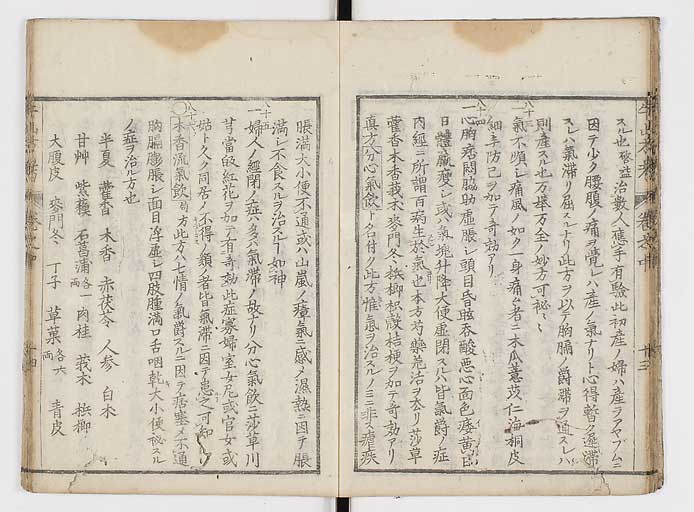 スル也啓益治數人應手有驗此初産ノ婦ハ産ヲアヤブムニ
因テ少ク腰腹ノ痛ヲ覺レハ産ノ氣ナリト心得暫ク遲滯
スレハ氣滯リ屈スルナリ此方ヲ以テ胸膈ノ爵滯ヲ通スレハ
則産スル也万擧万全ノ妙方可秘〻
八十三
氣不順シ痛風ノ如ク一身痛ム者ニ木瓜薏苡仁海桐皮
細辛防已ヲ加テ奇効アリ
八十四
一心胸痞悶脇肋虚脹シ頭目昏眩吞酸悪心面色痿黄口
日體羸瘦シ或ハ氣塊升降大便虚閉スルハ皆氣爵ノ症
内經ニ所謂百病生於氣也本方芍藥羌活ヲ去リ莎草
藿香木香莪朮麥門冬梹榔枳殻桔梗ヲ加テ奇効アリ
真方分心氣飲ト名付ク此方惟氣ヲ治スルノミニ非ス瘧疾
脹満大小便不通或ハ山嵐ノ瘴氣ニ感メ濕熱ニ因テ脹
満シ不食スルヲ治スルヿ如神
八十五
一婦人ノ經閉ノ症ハ多ハ氣滯ノ故アリ分心氣飲ニ莎草川
芎當皈紅花ヲ加テ有奇効此症寡婦室女尼或官女或
姑ト久ク同居メ不得ノ類ノ者皆氣滯ニ因テ患之可知
八十六
木香流氣飲 局方 此方ハ七情ノ氣爵スルニ因テ痞塞メ不通
胸膈膨脹シ面目浮虚シ四肢腫満口舌咽乾大小便秘スル
ノ症ヲ治ル方也
半夏 藿香 木香 赤茯苓 人参 白朮
甘艸 紫蘇 石菖蒲各一兩 肉桂 莪朮 梹榔
大腹皮 麥門冬 丁子 草菓各六兩 青皮